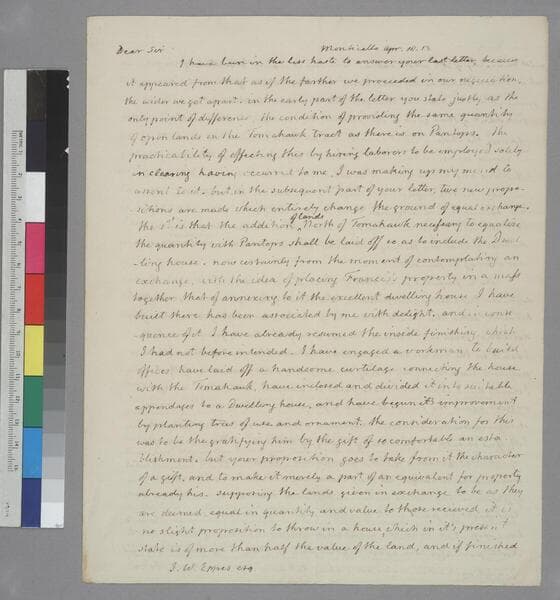 Dear Sir Monticello Apr. 10. 13
I have been in the less haste to answer your last letter, because
it appeared from that as if the farther we proceeded in our negociation,
the wider we got apart. in the early part of the letter you state justly, as the
only point of difference, the condition of providing the same quantity
of open lands in the Tomahawk tract as there is on Pantops. the
practicability of effecting this by hiring laborers to be employed solely
in clearing having occurred to me, I was making up my mind to
assent to it. but in the subsequent part of your letter, two new propo-
-sitions are made which entirely change the ground of equal exchange.
the 1st is that the addition of lands North of Tomahawk necessary to equalize
the quantity with Pantops shall be laid off so as to include the Dwel-
-ling house. now certainly from the moment of contemplating an
exchange, with the idea of placing Francis's property in a mass
together that of annexing to it the excellent dwelling house I have
built there has been associated by me with delight, and in conse-
quence of it I have already resumed the inside finishing which
I had not before intended. I have engaged a workman to build
offices, have laid off a handsome curtilage connecting the house
with the Tomahawk, have inclosed and divided it into suitable
appendages to a Dwelling house, and have begun it's improvement
by planting trees of use and ornament. the consideration for this
was to be the gratifying him by the gift of so comfortable an esta-
blishment. but your proposition goes to take from it the character
of a gift, and to make it merely a part of an equivalent for property
already his. supposing the lands given in exchange to be as they
are deemed, equal in quantity and value to those recieved, it is
no slight proposition to throw in a house, which in it's present
state is of more than half the value of the land, and if finished
J. W. Eppes esq.